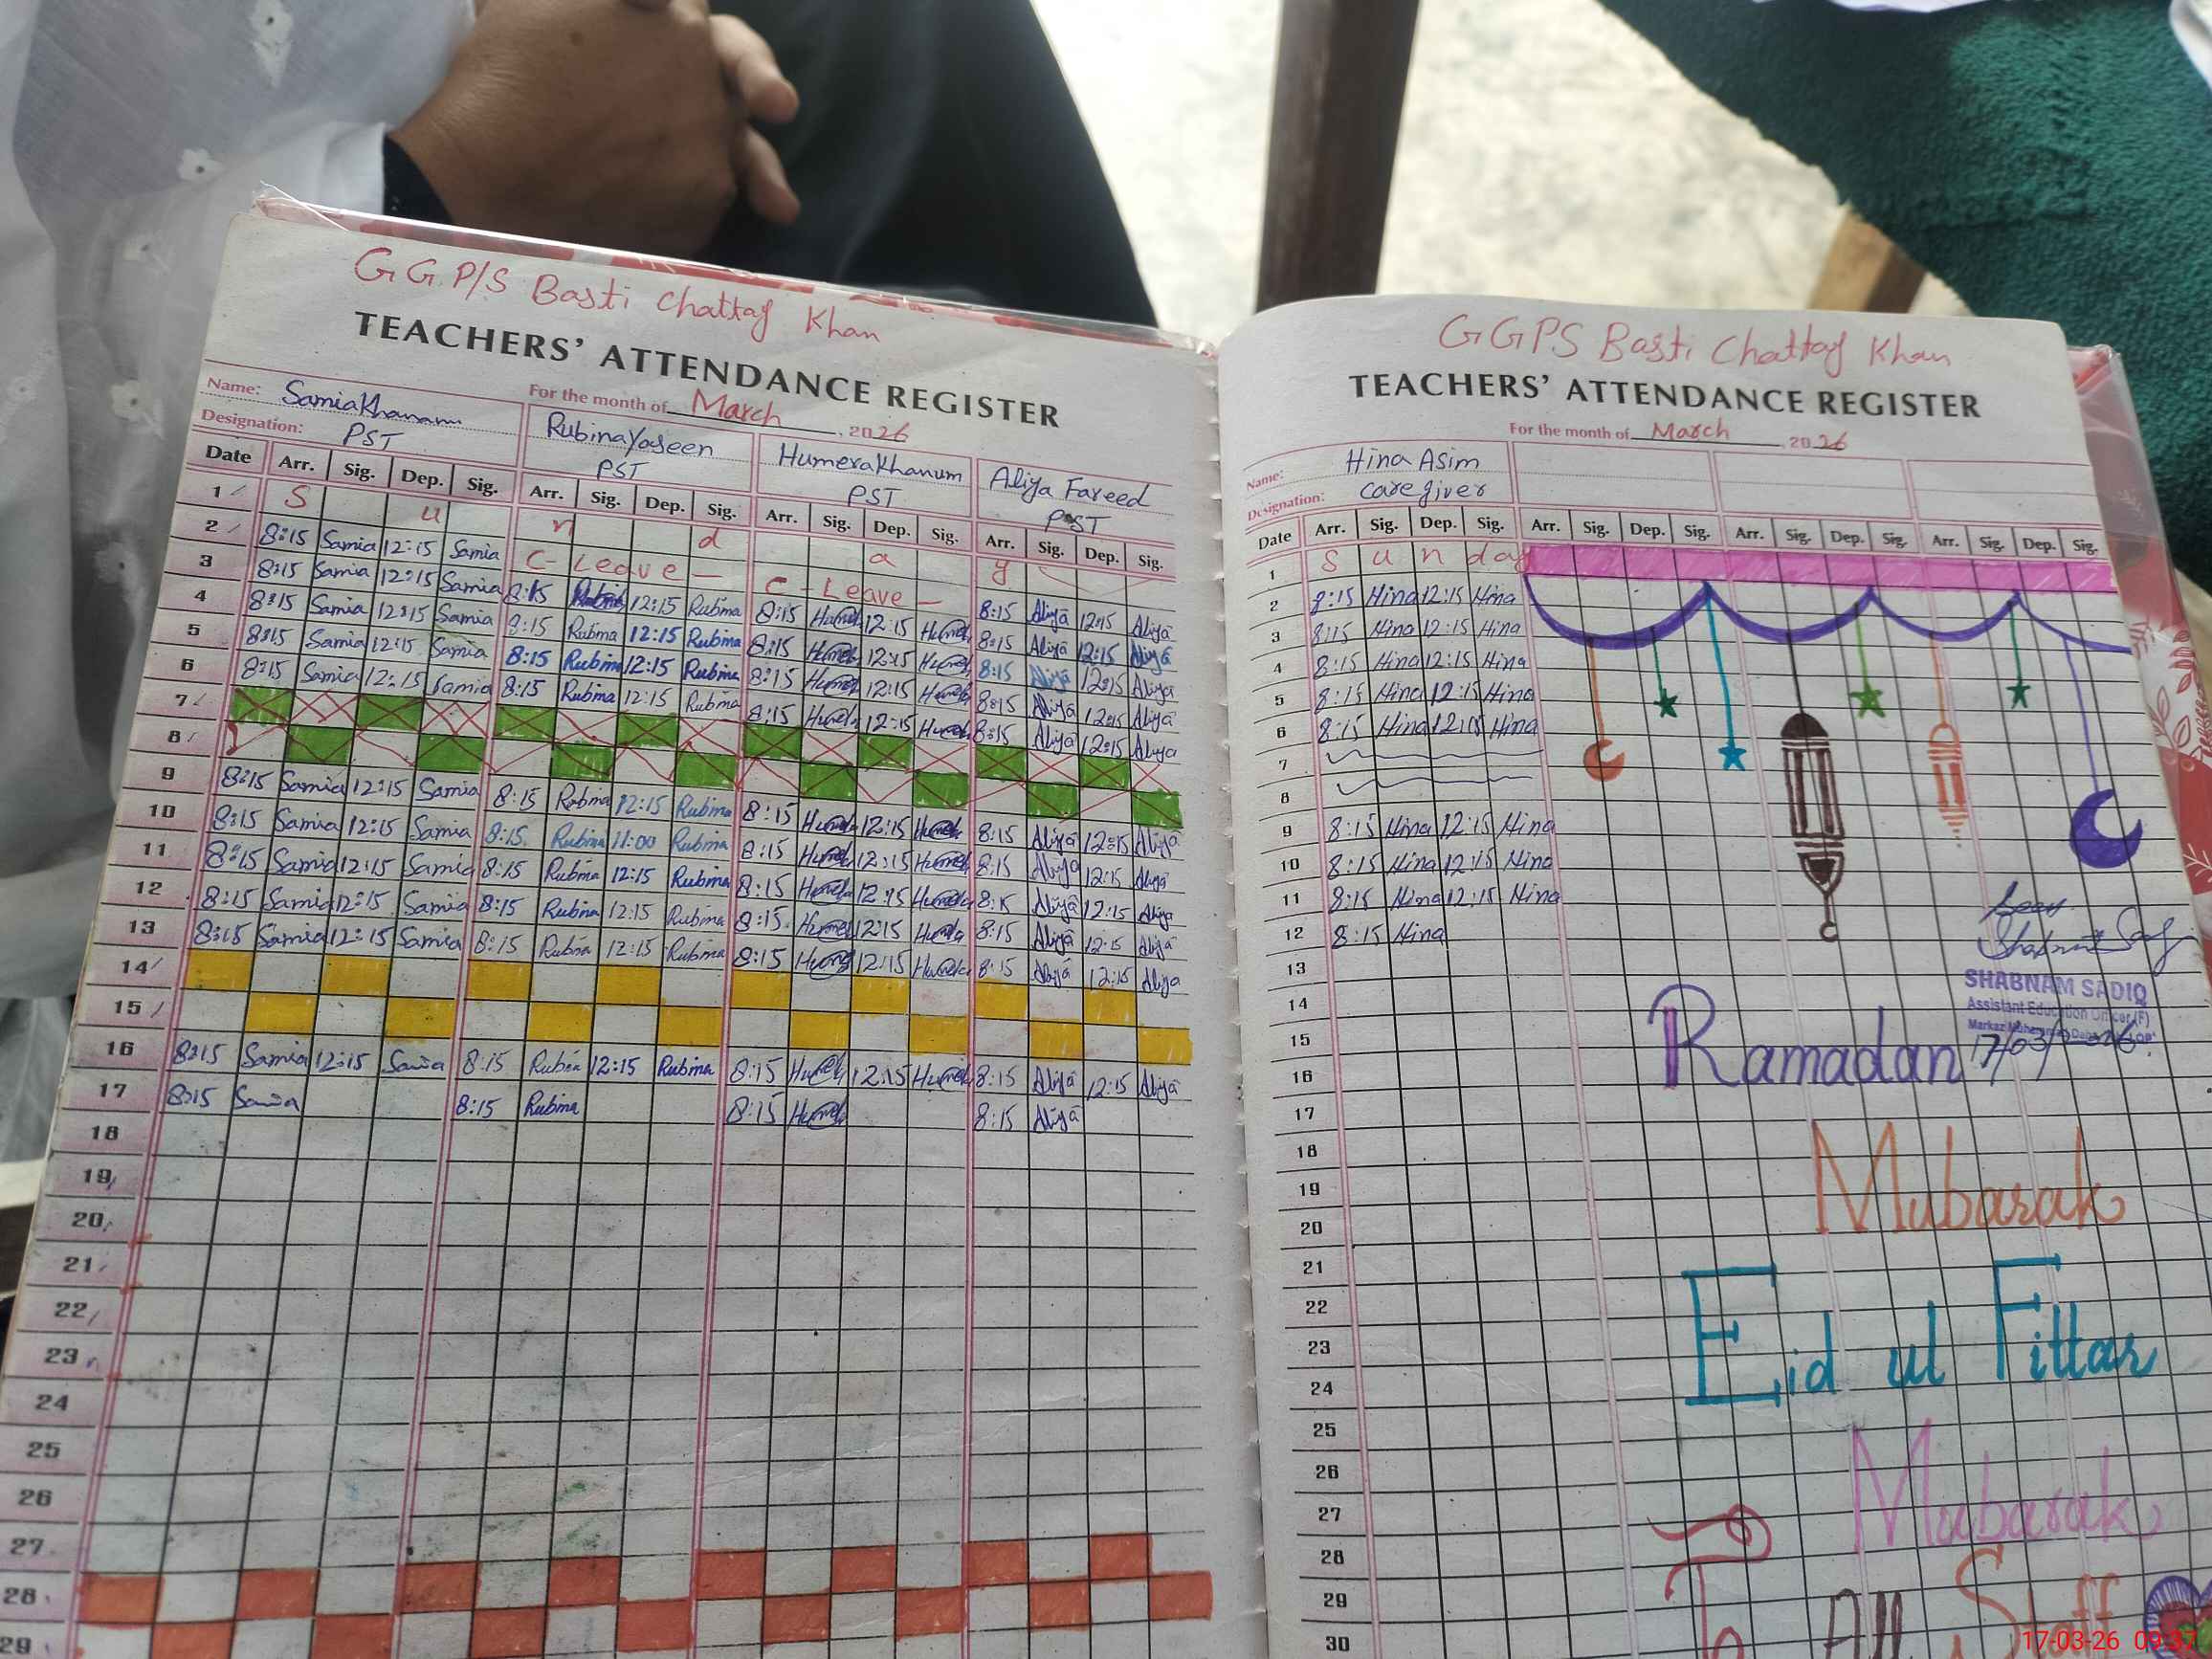 G G P/S Basti Chattaf Khan
TEACHERS' ATTENDANCE REGISTER
For the month of March, 2026
Name: Samia Khanam Rubina Yaseen Humera Khanum Aliya Fareed
Designation: PST PST PST PST
Date Arr. Sig. Dep. Sig. Arr. Sig. Dep. Sig. Arr. Sig. Dep. Sig. Arr. Sig. Dep. Sig.
1 S u n d a y
2 8:15 Samia 12:15 Samia C-Leave- C-Leave- 8:15 Aliya 12:15 Aliya
3 8:15 Samia 12:15 Samia 8:15 Rubina 12:15 Rubina 8:15 Humera 12:15 Humera 8:15 Aliya 12:15 Aliya
4 8:15 Samia 12:15 Samia 8:15 Rubina 12:15 Rubina 8:15 Humera 12:15 Humera 8:15 Aliya 12:15 Aliya
5 8:15 Samia 12:15 Samia 8:15 Rubina 12:15 Rubina 8:15 Humera 12:15 Humera 8:15 Aliya 12:15 Aliya
6 8:15 Samia 12:15 Samia 8:15 Rubina 12:15 Rubina 8:15 Humera 12:15 Humera 8:15 Aliya 12:15 Aliya
7
8
9 8:15 Samia 12:15 Samia 8:15 Rubina 12:15 Rubina 8:15 Humera 12:15 Humera 8:15 Aliya 12:15 Aliya
10 8:15 Samia 12:15 Samia 8:15 Rubina 11:00 Rubina 8:15 Humera 12:15 Humera 8:15 Aliya 12:15 Aliya
11 8:15 Samia 12:15 Samia 8:15 Rubina 12:15 Rubina 8:15 Humera 12:15 Humera 8:15 Aliya 12:15 Aliya
12 8:15 Samia 12:15 Samia 8:15 Rubina 12:15 Rubina 8:15 Humera 12:15 Humera 8:15 Aliya 12:15 Aliya
13 8:15 Samia 12:15 Samia 8:15 Rubina 12:15 Rubina 8:15 Humera 12:15 Humera 8:15 Aliya 12:15 Aliya
14
15
16 8:15 Samia 12:15 Samia 8:15 Rubina 12:15 Rubina 8:15 Humera 12:15 Humera 8:15 Aliya 12:15 Aliya
17 8:15 Samia 8:15 Rubina 8:15 Humera 8:15 Aliya
18
19
20
21
22
23
24
25
26
27
28
29
GGPS Basti Chattaf Khan
TEACHERS' ATTENDANCE REGISTER
For the month of March, 2026
Name: Hina Asim
Designation: Care giver
Date Arr. Sig. Dep. Sig. Arr. Sig. Dep. Sig. Arr. Sig. Dep. Sig. Arr. Sig. Dep. Sig.
1 S u n day
2 8:15 Hina 12:15 Hina
3 8:15 Hina 12:15 Hina
4 8:15 Hina 12:15 Hina
5 8:15 Hina 12:15 Hina
6 8:15 Hina 12:15 Hina
7
8
9 8:15 Hina 12:15 Hina
10 8:15 Hina 12:15 Hina
11 8:15 Hina 12:15 Hina
12 8:15 Hina
13
14
15
16
17
18
19
20
21
22
23
24
25
26
27
28
29
30
Seen
SHABNAM SADIQ
Assistant Education Officer (F)
Markaz
17/03/2026
Ramadan
Mubarak
Eid ul Fittar
Mubarak
To All Staff
17-03-26 09:37